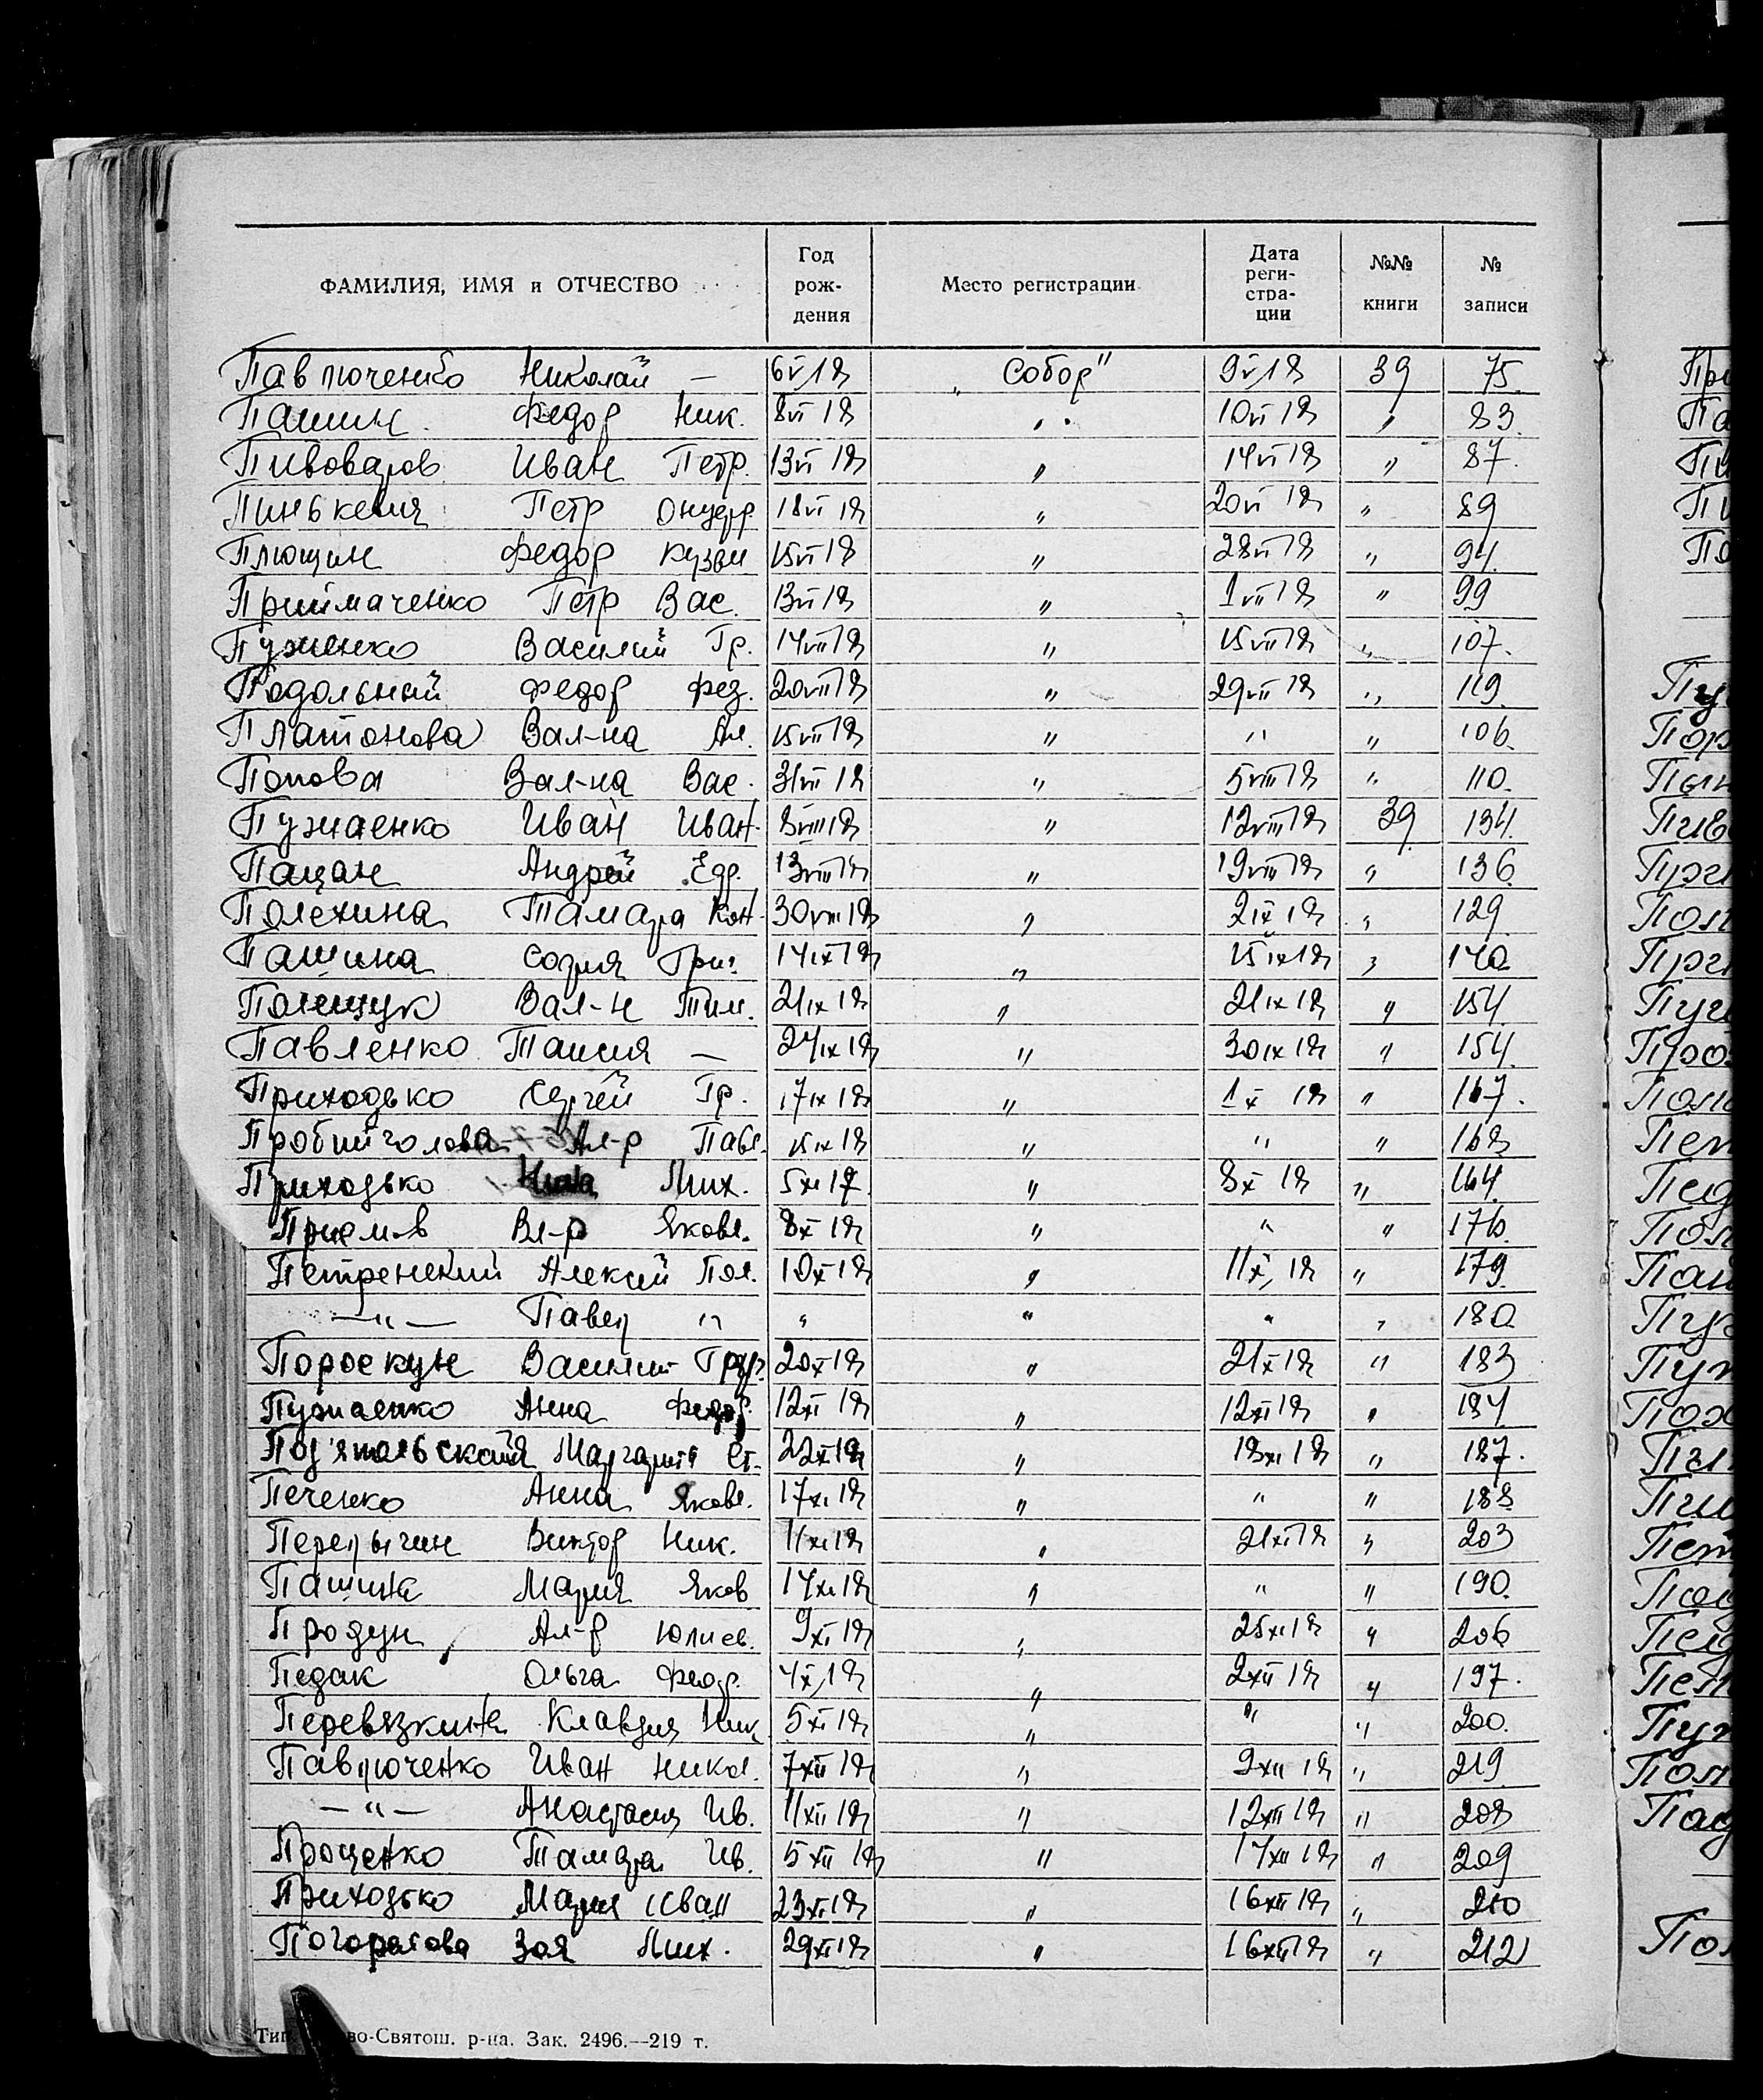 ФАМИЛИЯ, ИМЯ и ОТЧЕСТВО | Год рождения | Место регистрации | Дата регистрации | №№ книги | № записи
Павлюченко Николай — 6 V 18 „Собор" 9 V 18 39 75.
Пашин Федор Ник. 8 VI 18 " 10 VI 18 " 83.
Пивоваров Иван Петр. 13 VI 18 " 14 VI 18 " 87.
Пинькевич Петр Онуфр. 18 VI 18 " 20 VI 18 " 89
Плющин Федор Кузьм 15 VI 18 " 28 VI 18 " 94.
Приймаченко Петр Вас. 13 VI 18 " 1 VII 18 " 99
Пуженко Василий Гр. 14 VII 18 " 15 VII 18 " 107.
Подольный Федор Фед. 20 VII 18 " 29 VII 18 " 119.
Платонова Вал-на Ал. 15 VII 18 " " " 106.
Попова Вал-на Вас. 31 VII 18 " 5 VIII 18 " 110.
Пужаенко Иван Иван. 8 VIII 18 " 12 VIII 18 39 134.
Пацан Андрей 13 VIII 18 " 19 VIII 18 " 136.
Полехина Тамара Кон. 30 VIII 18 " 2 IX 18 " 129
Пашина София Григ. 14 IX 18 " 15 IX 18 " 140
Полещук Вал-н Тим. 21 IX 18 " 21 IX 18 " 154
Павленко Таисия — 24 IX 18 " 30 IX 18 " 154.
Приходько Сергей Гр. 17 IX 18 " 1 X 18 " 167.
Пробийголова Ал-р Павл. 15 IX 18 " " " 168
Приходько Нина Мих. 5 XI 17 " 8 X 18 " 164.
Приемов Вл-р Яковл. 8 X 18 " " " 176.
Петренский Алексей Пол. 10 X 18 " 11 X 18 " 179.
—"— Павел " " " " " 180
Пороскун Василий Григ. 20 X 18 " 21 X 18 " 183
Пужаенко Анна Федор. 12 XI 18 " 12 XI 18 " 184
Под'япольская Маргарита Ст. 22 X 18 " 18 XI 18 " 187.
Печенко Анна Яковл. 17 XI 18 " " " 188
Перелыгин Виктор Ник. 11 XI 18 " 21 XI 18 " 203
Пашина Мария Яков 14 XI 18 " " " 190.
Продун Ал-р Юлиев. 9 XI 18 " 25 XI 18 " 206
Педак Ольга Феод. 4 X 18 " 2 XII 18 " 197.
Перевязкина Клавдия Ник 5 XI 18 " " " 200.
Павлюченко Иван Никол. 7 XII 18 " 9 XII 18 " 219
—"— Анастасия Ив. 11 XII 18 " 12 XII 18 " 208
Проценко Тамара Ив. 5 XII 18 " 17 XII 18 " 209
Приходько Мария Иван 23 XI 18 " 16 XII 18 " 210
Погорелова Зоя Мих. 29 XI 18 " 16 XII 18 " 212
во-Святош. р-на. Зак. 2496.—219 т.